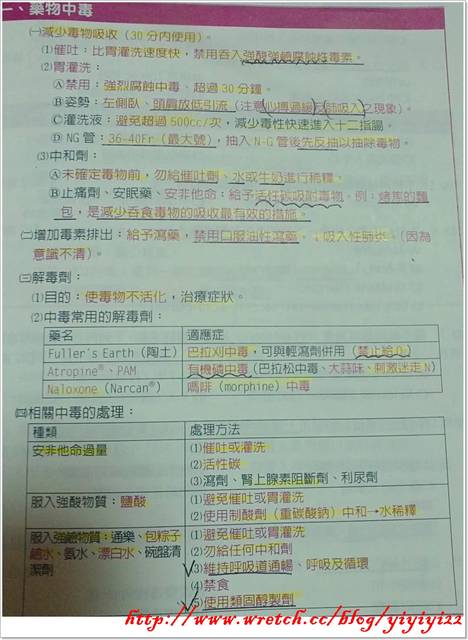 一、藥物中毒
㈠減少毒物吸收（30分內使用）。
⑴催吐：比胃灌洗速度快，禁用吞入強酸強鹼腐蝕性毒素。
⑵胃灌洗：
Ⓐ禁用：強烈腐蝕中毒、超過30分鐘。
Ⓑ姿勢：左側臥、頭肩放低引流（注意心搏過緩及肺吸入之現象）。
Ⓒ灌洗液：避免超過500cc/次，減少毒性快速進入十二指腸。
Ⓓ NG管：36-40Fr（最大號），抽入N-G管後先反抽以抽除毒物。
⑶中和劑：
Ⓐ未確定毒物前，勿給催吐劑、水或生奶進行稀釋。
Ⓑ止痛劑、安眠藥、安非他命：給予活性碳吸附毒物。例：烤焦的麵
包，是減少吞食毒物的吸收最有效的措施。
㈡增加毒素排出：給予瀉藥，禁用口服油性瀉藥，吸入性肺炎。（因為
意識不清）。
㈢解毒劑：
⑴目的：使毒物不活化，治療症狀。
⑵中毒常用的解毒劑：
藥名 適應症
Fuller's Earth（陶土） 巴拉刈中毒，可與輕瀉劑併用（禁止給O₂）
Atropine®、PAM 有機磷中毒（巴拉松中毒、大蒜味、刺激迷走N）
Naloxone（Narcan®） 嗎啡（morphine）中毒
㈣相關中毒的處理：
種類 處理方法
安非他命過量 ⑴催吐或灌洗
⑵活性碳
⑶瀉劑、腎上腺素阻斷劑、利尿劑
服入強酸物質：鹽酸 ⑴避免催吐或胃灌洗
⑵使用制酸劑（重碳酸鈉）中和→水稀釋
服入強鹼物質：通樂、包粽子 ⑴避免催吐或胃灌洗
鹼水、氨水、漂白水、碗盤清 ⑵勿給任何中和劑
潔劑 ⑶維持呼吸道通暢、呼吸及循環
⑷禁食
⑸使用類固醇製劑
http://www.wretch.cc/blog/yiyiyi22